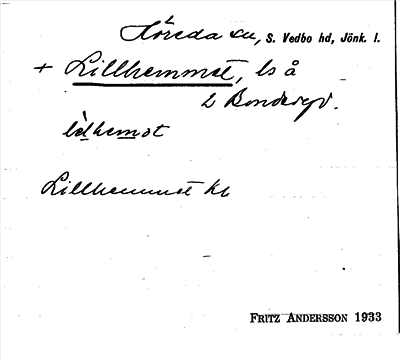 Höreda sn, S. Vedbo hd, Jönk. l.
+ Lillhemmet, ls å
L Bonderyd.
lìlhemǝt
Lillhemmet kb
FRITZ ANDERSSON 1933